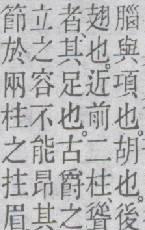 腦與項也。胡也。後
翅也。近前二柱、聳
者、其足也。古爵之
立之容不能昂其
節於兩柱之拄眉